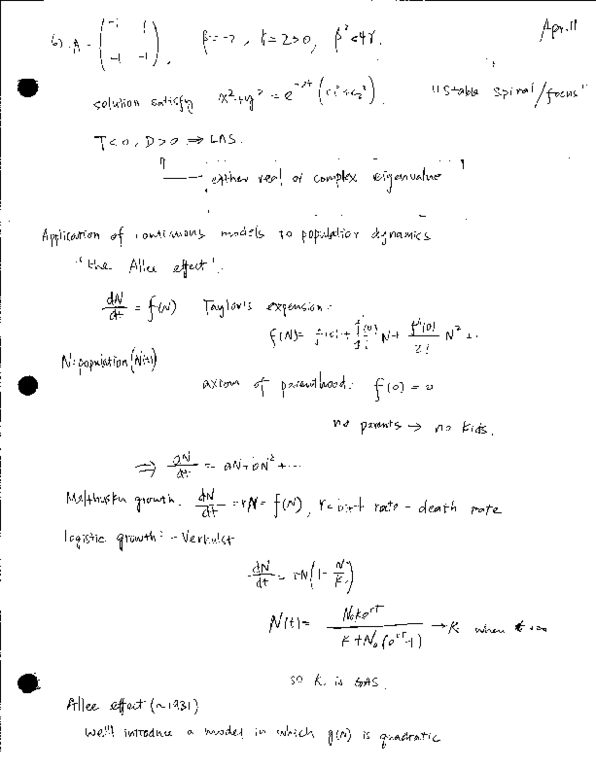 Apr. 11
6). A = (-1 1 -1 -1), β = -2, γ = 2 > 0, β² < 4γ.
solution satisfy x² + y² = e^{-2t} (c₁² + c₂²). "Stable spiral/focus"
T < 0, D > 0 ⇒ LAS.
either real or complex eigenvalue
Application of continuous models to population dynamics
"the Allee effect".
dN/dt = f(N) Taylor's expension:
f(N) = f(0) + f'(0)/1! N + f''(0)/2! N² + ..
N: population (N(t))
axiom of parenthood: f(0) = 0
no parents → no kids.
⇒ dN/dt = aN + bN² + ...
Malthusian growth. dN/dt = rN = f(N), r = birth rate - death rate
logistic growth: - Verhulst
dN/dt = rN(1 - N/K)
N(t) = N₀Ke^{rt} / K + N₀(e^{rt} - 1) → K when t → ∞
so K is GAS.
Allee effect (~1931)
We'll introduce a model in which g(N) is quadratic